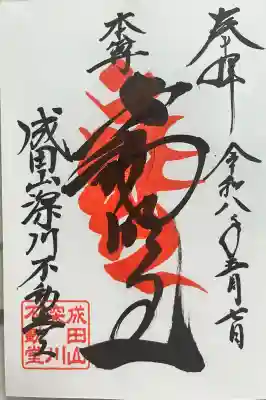 奉拝
令和八年五月七日
本尊
不動明王
成田山深川不動堂
成田山
深川
不動堂